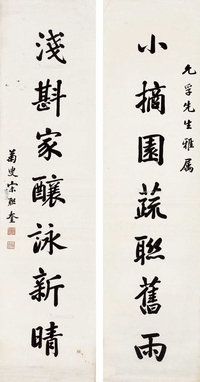 允孚先生雅属
小摘園蔬聯舊雨
淺斟家釀詠新晴